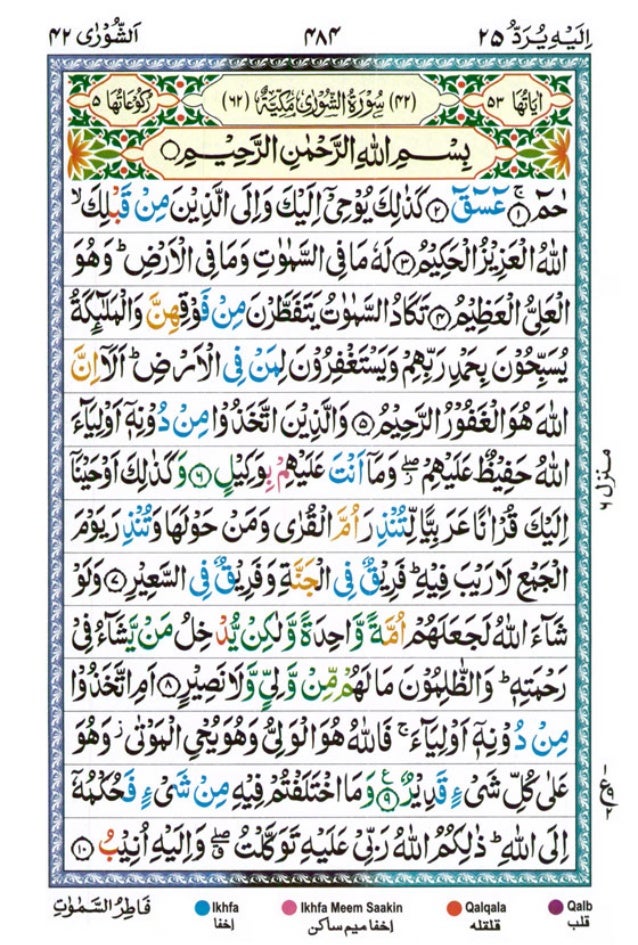 اِلَیْهِ یُرَدُّ ۲۵
۴۸۴
اَلشُّوْرٰی ۴۲
اٰیَاتُهَا ۵۳
(۴۲) سُوْرَةُ الشُّوْرٰی مَكِّیَّةٌ (۶۲)
رُكُوْعَاتُهَا ۵
بِسْمِ اللّٰهِ الرَّحْمٰنِ الرَّحِیْمِ
حٰمٓ ۚ﴿۱﴾ عٓسٓقٓ ﴿۲﴾ كَذٰلِكَ یُوْحِیْۤ اِلَیْكَ وَاِلَی الَّذِیْنَ مِنْ قَبْلِكَ ۙ
اللّٰهُ الْعَزِیْزُ الْحَكِیْمُ ﴿۳﴾ لَهٗ مَا فِی السَّمٰوٰتِ وَمَا فِی الْاَرْضِ ؕ وَهُوَ
الْعَلِیُّ الْعَظِیْمُ ﴿۴﴾ تَكَادُ السَّمٰوٰتُ یَتَفَطَّرْنَ مِنْ فَوْقِهِنَّ وَالْمَلٰٓىِٕكَةُ
یُسَبِّحُوْنَ بِحَمْدِ رَبِّهِمْ وَیَسْتَغْفِرُوْنَ لِمَنْ فِی الْاَرْضِ ؕ اَلَاۤ اِنَّ
اللّٰهَ هُوَ الْغَفُوْرُ الرَّحِیْمُ ﴿۵﴾ وَالَّذِیْنَ اتَّخَذُوْا مِنْ دُوْنِهٖۤ اَوْلِیَآءَ
اللّٰهُ حَفِیْظٌ عَلَیْهِمْ ۖؗ وَمَاۤ اَنْتَ عَلَیْهِمْ بِوَكِیْلٍ ﴿۶﴾ وَكَذٰلِكَ اَوْحَیْنَاۤ
اِلَیْكَ قُرْاٰنًا عَرَبِیًّا لِّتُنْذِرَ اُمَّ الْقُرٰی وَمَنْ حَوْلَهَا وَتُنْذِرَ یَوْمَ
الْجَمْعِ لَا رَیْبَ فِیْهِ ؕ فَرِیْقٌ فِی الْجَنَّةِ وَفَرِیْقٌ فِی السَّعِیْرِ ﴿۷﴾ وَلَوْ
شَآءَ اللّٰهُ لَجَعَلَهُمْ اُمَّةً وَّاحِدَةً وَّلٰكِنْ یُّدْخِلُ مَنْ یَّشَآءُ فِیْ
رَحْمَتِهٖ ؕ وَالظّٰلِمُوْنَ مَا لَهُمْ مِّنْ وَّلِیٍّ وَّلَا نَصِیْرٍ ﴿۸﴾ اَمِ اتَّخَذُوْا
مِنْ دُوْنِهٖۤ اَوْلِیَآءَ ۚ فَاللّٰهُ هُوَ الْوَلِیُّ وَهُوَ یُحْیِ الْمَوْتٰی ؗ وَهُوَ
عَلٰی كُلِّ شَیْءٍ قَدِیْرٌ ﴿۹﴾ وَمَا اخْتَلَفْتُمْ فِیْهِ مِنْ شَیْءٍ فَحُكْمُهٗۤ
اِلَی اللّٰهِ ؕ ذٰلِكُمُ اللّٰهُ رَبِّیْ عَلَیْهِ تَوَكَّلْتُ ۖۗ وَاِلَیْهِ اُنِیْبُ ﴿۱۰﴾
منزل ۶
ع
فَاطِرُ السَّمٰوٰتِ
Ikhfa
اخفا
Ikhfa Meem Saakin
اخفا میم ساکن
Qalqala
قلقله
Qalb
قلب